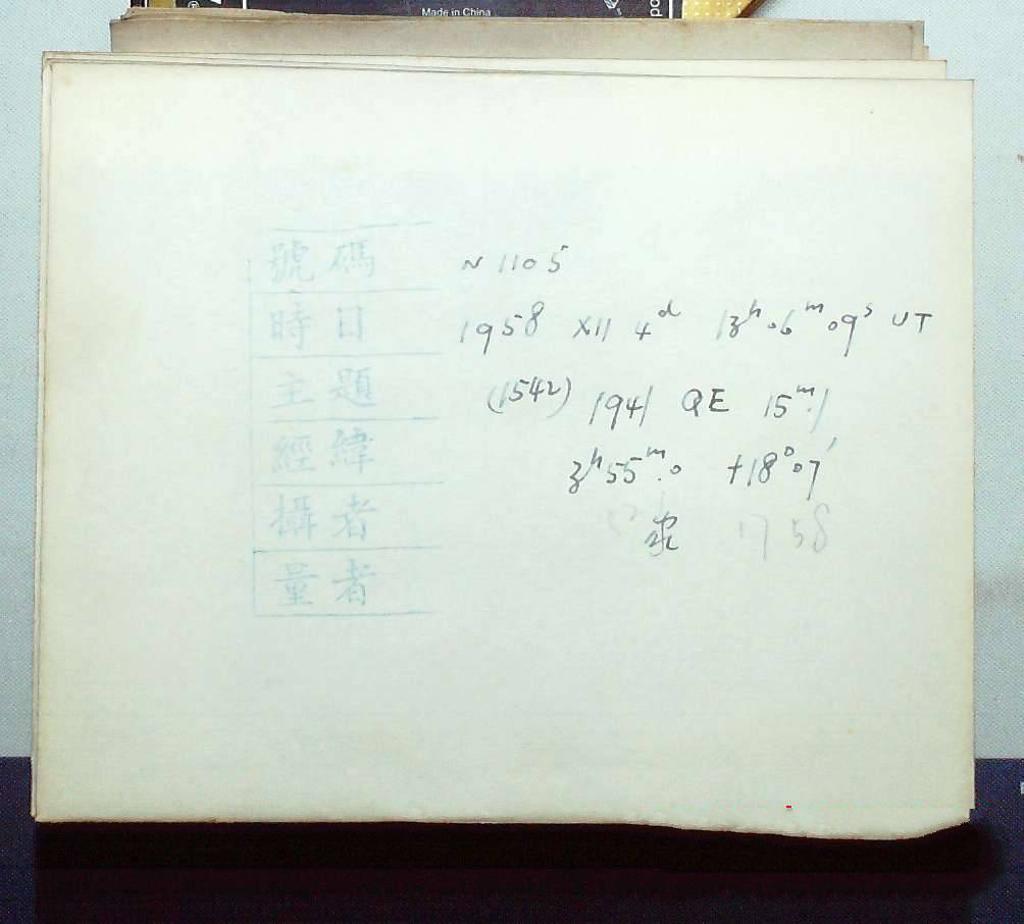 Made in China
號碼 N 1105
時日 1958 XII 4ᵈ 13ʰ06ᵐ09ˢ UT
主題 (1542) 1941 QE 15ᵐ.1
經緯 3ʰ55ᵐ.0 +18°07′
攝者
量者